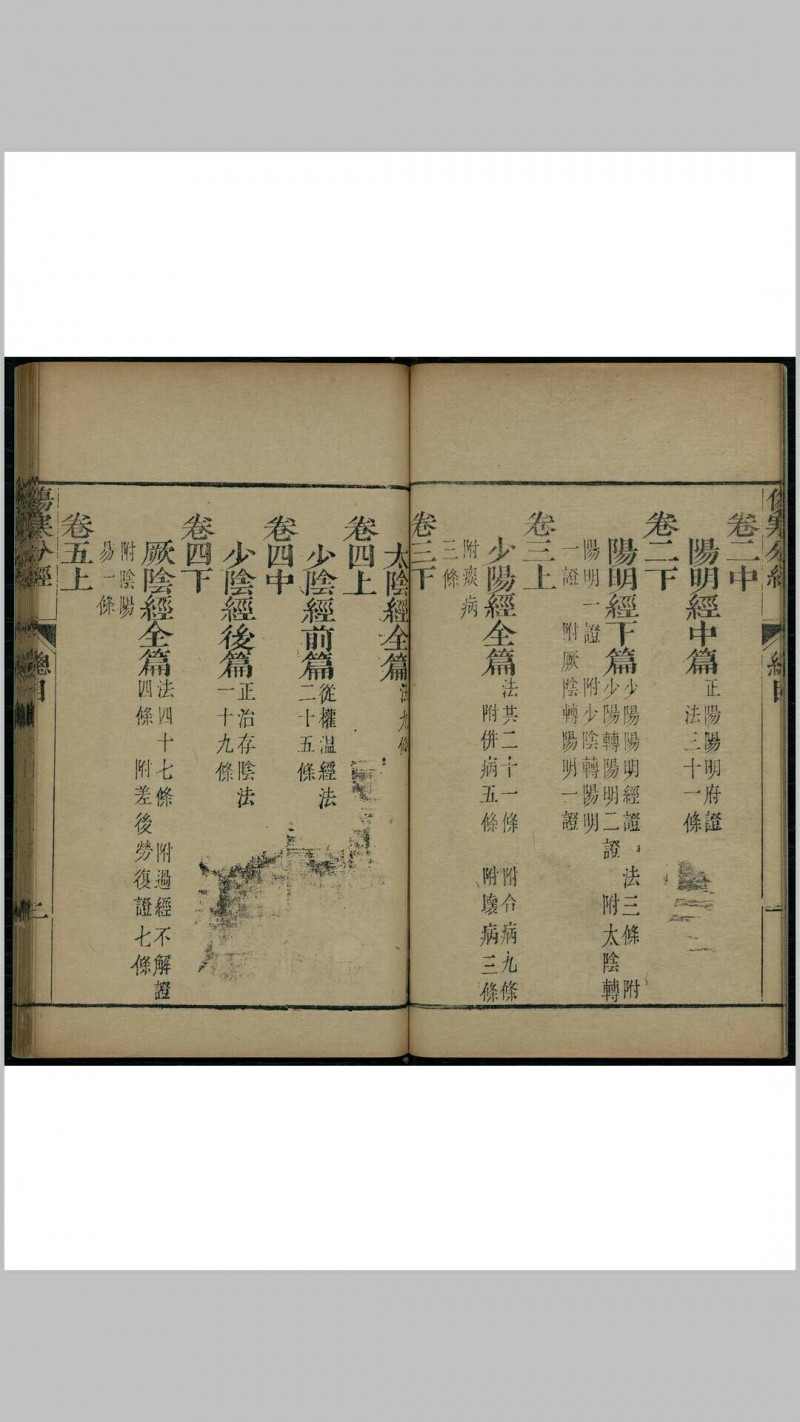 卷二中
陽明經中篇
正陽陽明府證
法三十一條
卷二下
陽明經下篇
少陽陽明經證 法三條 附
少陽轉陽明二證 附太陰轉
陽明一證 附少陰轉陽明
一證 附厥陰轉陽明一證
卷三上
少陽經全篇
法共二十一條 附合病九條
附併病五條 附壞病三條
附痰病
三條
卷三下
太陰經全篇
法九條
卷四上
少陰經前篇
從權溫經法
二十五條
卷四中
少陰經後篇
正治存陰法
一十九條
卷四下
厥陰經全篇
法四十七條 附過經不解證
四條 附差後勞復證七條
附陰陽
易一條
卷五上
傷寒分經
總目
二